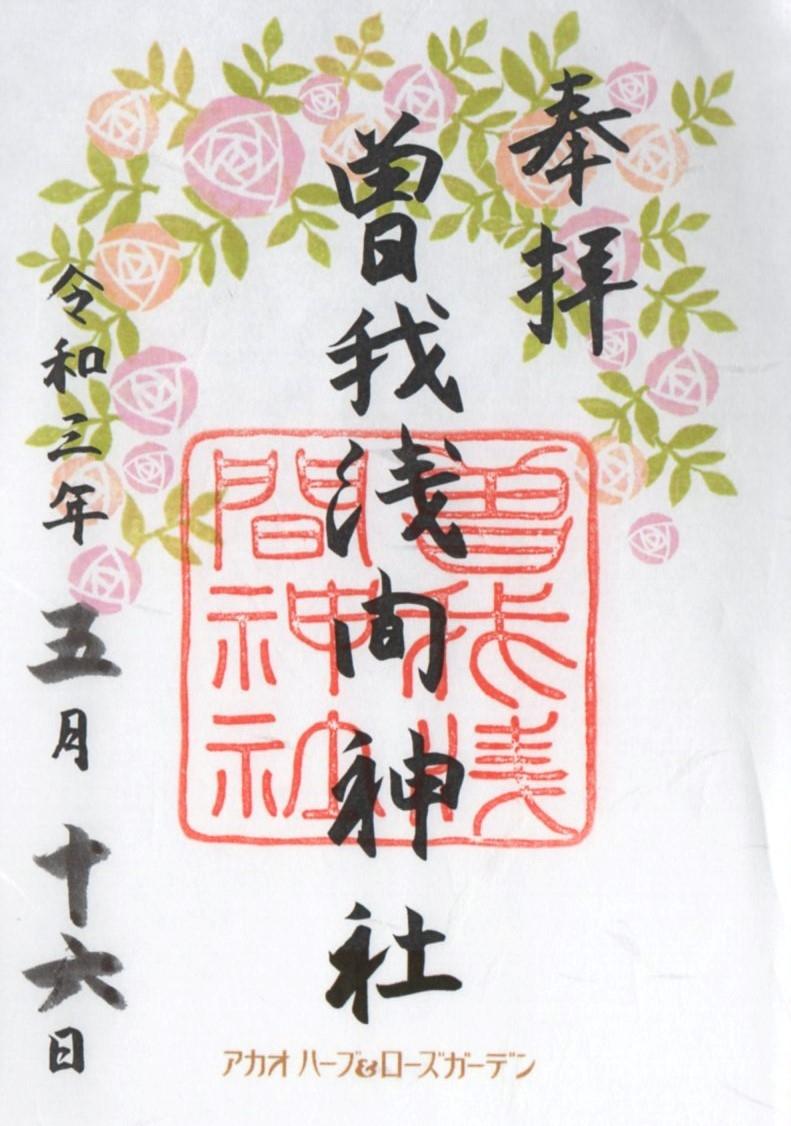 奉拝
曽我浅间神社
曽我浅
間神社
令和三年 五月 十六日
アカオ ハーブ&ローズガーデン